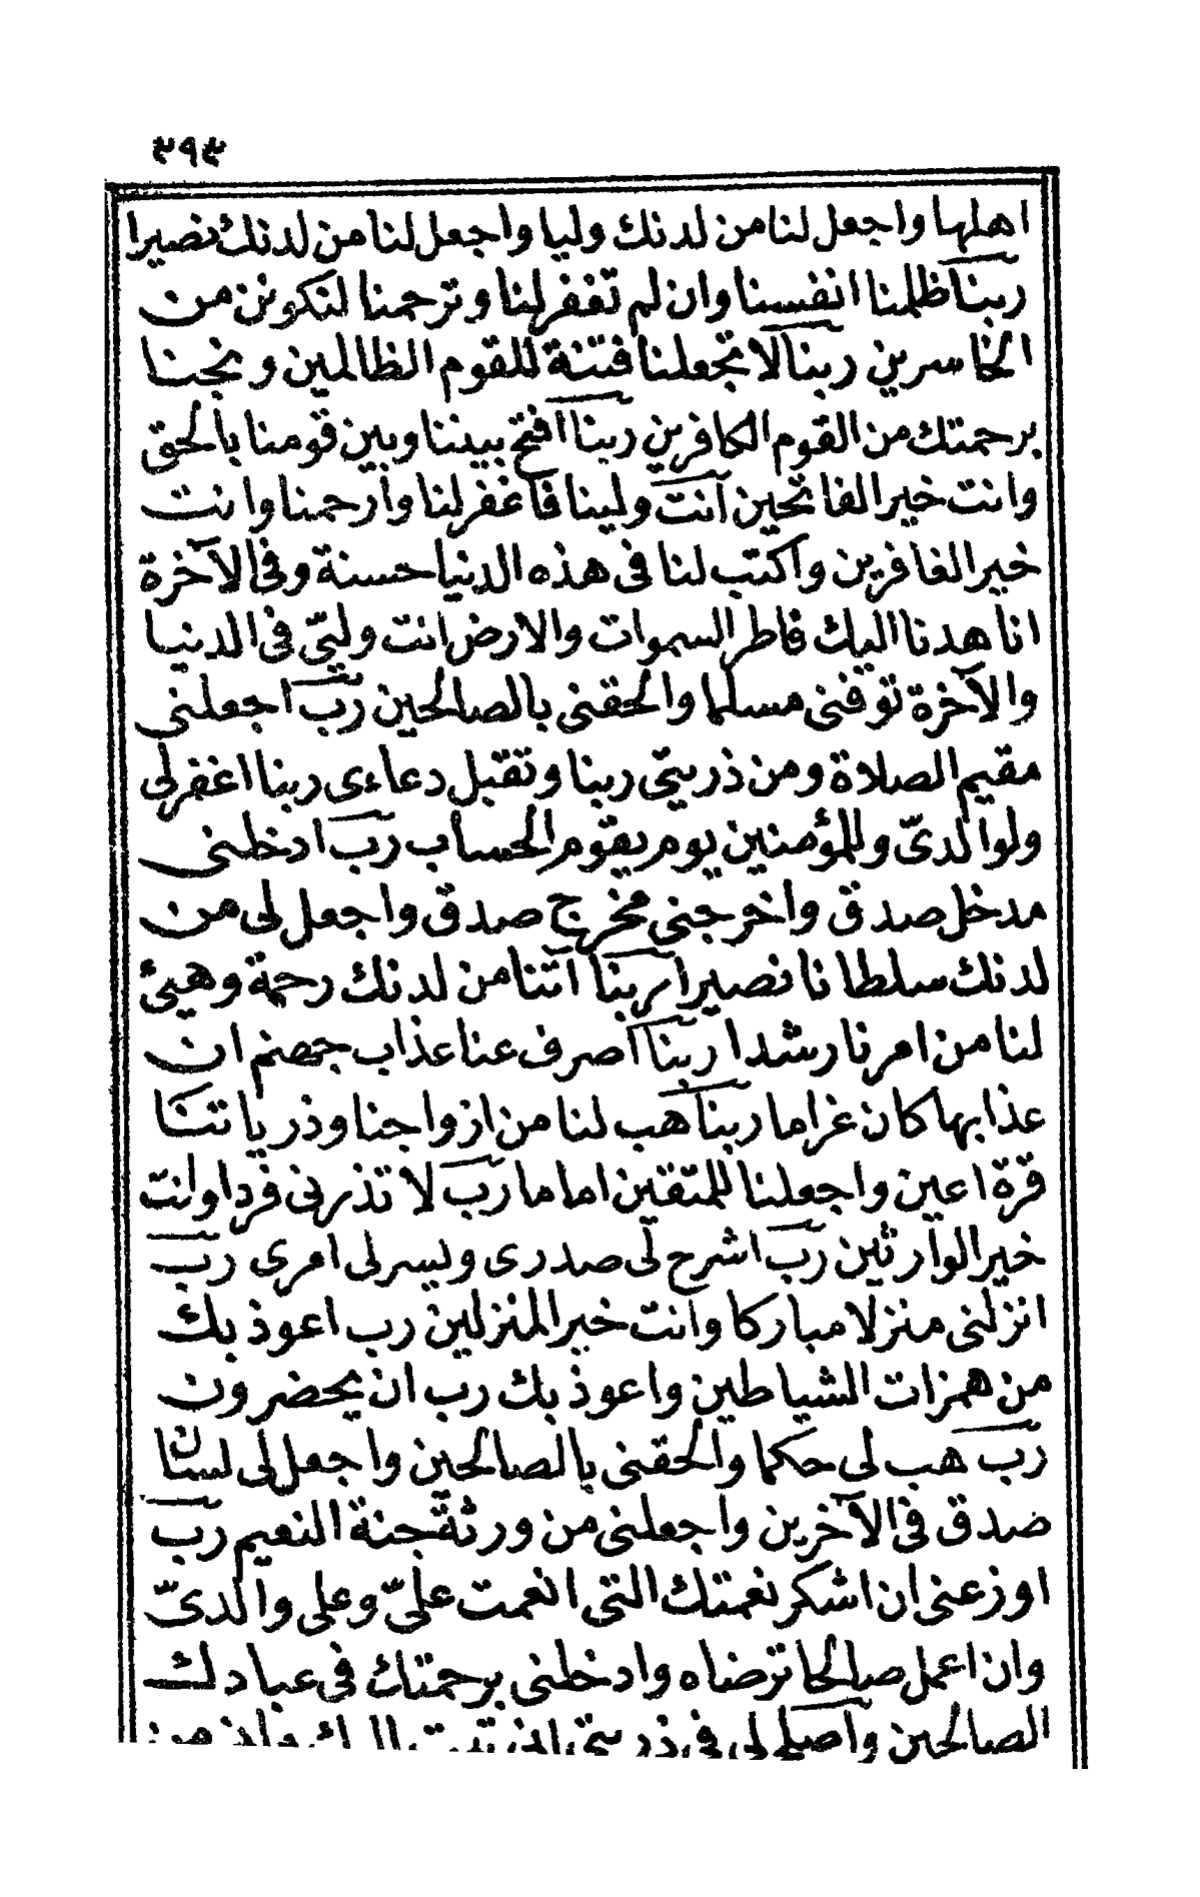 ٣٩٣
اهلها واجعل لنا من لدنك وليا واجعل لنا من لدنك نصيرا
ربنا ظلمنا انفسنا وان لم تغفر لنا وترحمنا لنكونن من
الخاسرين ربنا لا تجعلنا فتنة للقوم الظالمين ونجنا
برحمتك من القوم الكافرين ربنا افتح بيننا وبين قومنا بالحق
وانت خير الفاتحين انت ولينا فاغفر لنا وارحمنا وانت
خير الغافرين واكتب لنا فى هذه الدنيا حسنة وفى الآخرة
انا هدنا اليك فاطر السموات والارض انت وليّى فى الدنيا
والآخرة توفنى مسلما والحقنى بالصالحين رب اجعلنى
مقيم الصلاة ومن ذريتى ربنا وتقبل دعاءى ربنا اغفر لى
ولوالدىّ وللمؤمنين يوم يقوم الحساب رب ادخلنى
مدخل صدق واخرجنى مخرج صدق واجعل لى من
لدنك سلطانا نصيرا ربنا آتنا من لدنك رحمة وهيئ
لنا من امرنا رشدا ربنا اصرف عنا عذاب جهنم ان
عذابها كان غراما ربنا هب لنا من ازواجنا وذرياتنا
قرة اعين واجعلنا للمتقين اماما رب لا تذرنى فردا وانت
خير الوارثين رب اشرح لى صدرى ويسر لى امرى رب
انزلنى منزلا مباركا وانت خير المنزلين رب اعوذ بك
من همزات الشياطين واعوذ بك رب ان يحضرون
رب هب لى حكما والحقنى بالصالحين واجعل لى لسان
صدق فى الآخرين واجعلنى من ورثة جنة النعيم رب
اوزعنى ان اشكر نعمتك التى انعمت علىّ وعلى والدىّ
وان اعمل صالحا ترضاه وادخلنى برحمتك فى عبادك
الصالحين واصلح لى فى ذريتى انى تبت اليك وانى من